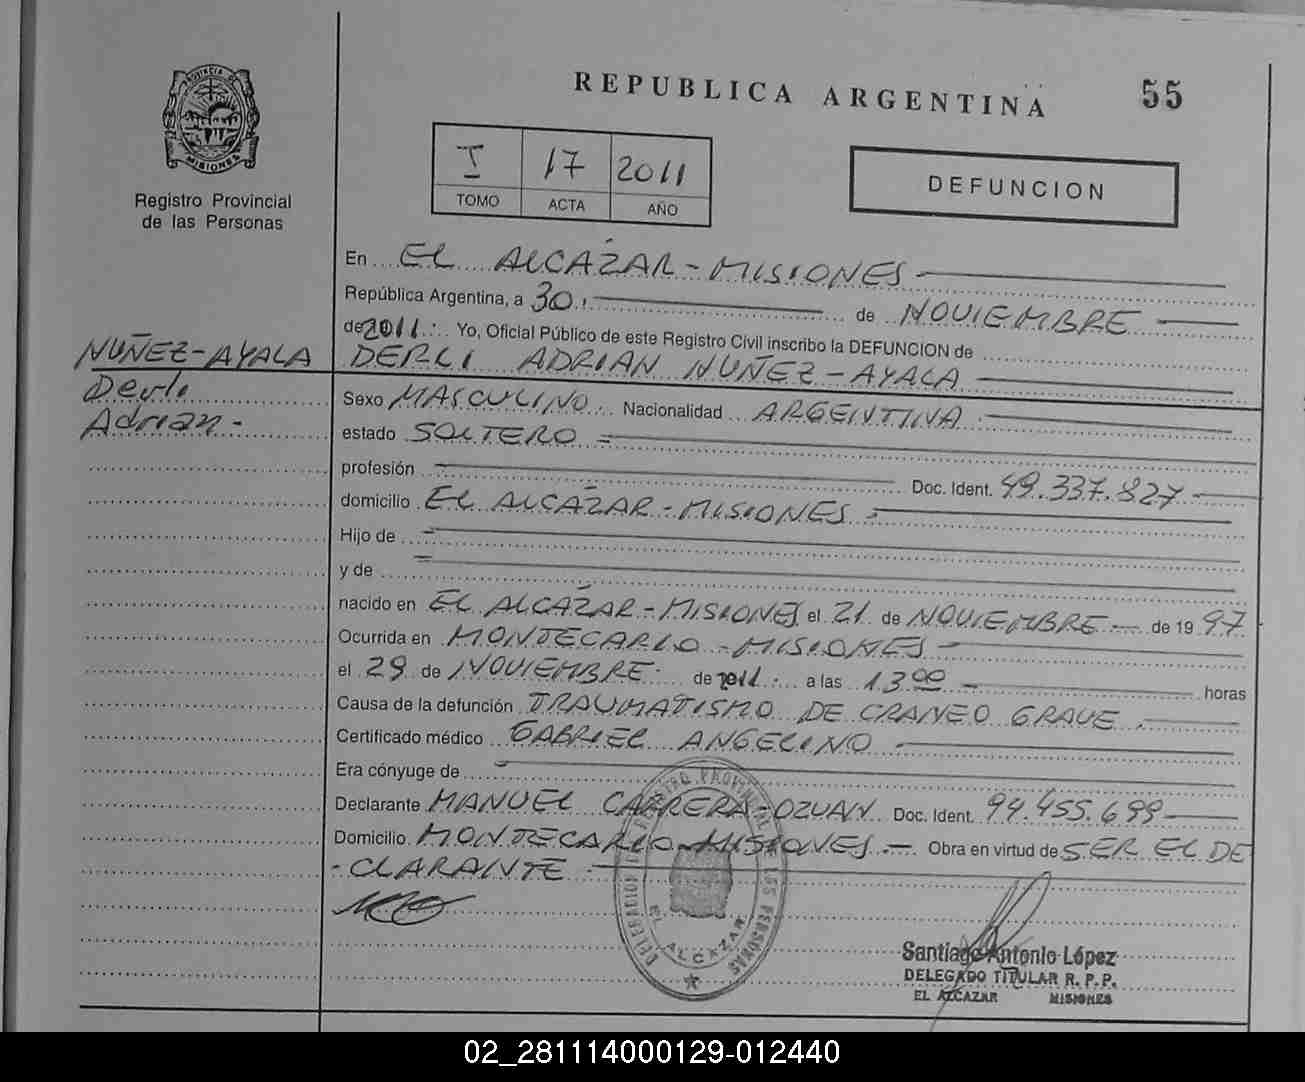 REPUBLICA ARGENTINA
55
PROVINCIA DE
MISIONES
Registro Provincial
de las Personas
I 17 2011
TOMO ACTA AÑO
DEFUNCION
En EL ALCÁZAR - MISIONES
República Argentina, a 30 de NOVIEMBRE
de 2011 Yo, Oficial Público de este Registro Civil inscribo la DEFUNCION de
NUÑEZ-AYALA
Derli
Adrian -
DERLI ADRIAN NUÑEZ - AYALA
Sexo MASCULINO Nacionalidad ARGENTINA
estado SOLTERO =
profesión Doc. Ident. 49.337.827
domicilio EL ALCÁZAR - MISIONES
Hijo de
y de
nacido en EL ALCÁZAR - MISIONES el 21 de NOVIEMBRE de 1997
Ocurrida en MONTECARLO - MISIONES
el 29 de NOVIEMBRE de 2011 a las 13 00 horas
Causa de la defunción TRAUMATISMO DE CRANEO GRAVE
Certificado médico GABRIEL ANGELINO
Era cónyuge de
Declarante MANUEL CABRERA-OZUAN Doc. Ident. 94.455.699
Domicilio MONTECARLO - MISIONES Obra en virtud de SER EL DE
- CLARANTE
DELEGACION DEL REGISTRO PROVINCIAL DE LAS PERSONAS
EL ALCAZAR
Santiago Antonio López
DELEGADO TITULAR R. P. P.
EL ALCAZAR MISIONES
02_281114000129-012440